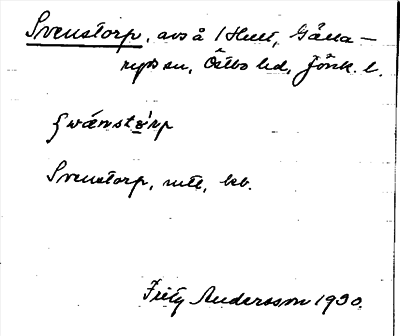 Svenstorp, avs å 1 Hult, Gälla-
ryds sn, Östbo hd, Jönk. l.
svänstorp
Svenstorp, mtl, kb.
Fritz Andersson 1930.